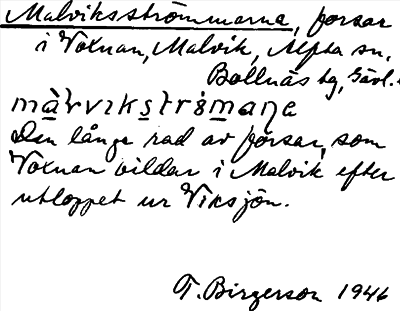 Malviksströmmarna, forsar
i Voxnan, Malvik, Alfta sn,
Bollnäs tg, Gävl.
Den långe rad av forsar, som
Voxnan bildar i Malvik efter
utloppet ur Viksjön.
T. Birgerson 1946